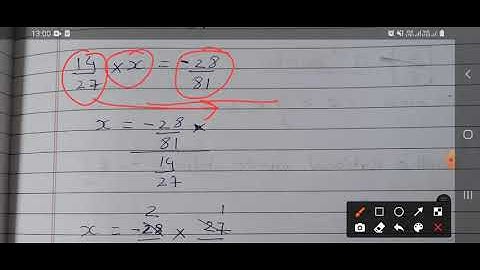 13:00
14/27 × x = -28/81
x = -28/81 ×
14/27
2 1
x = -28 × 27